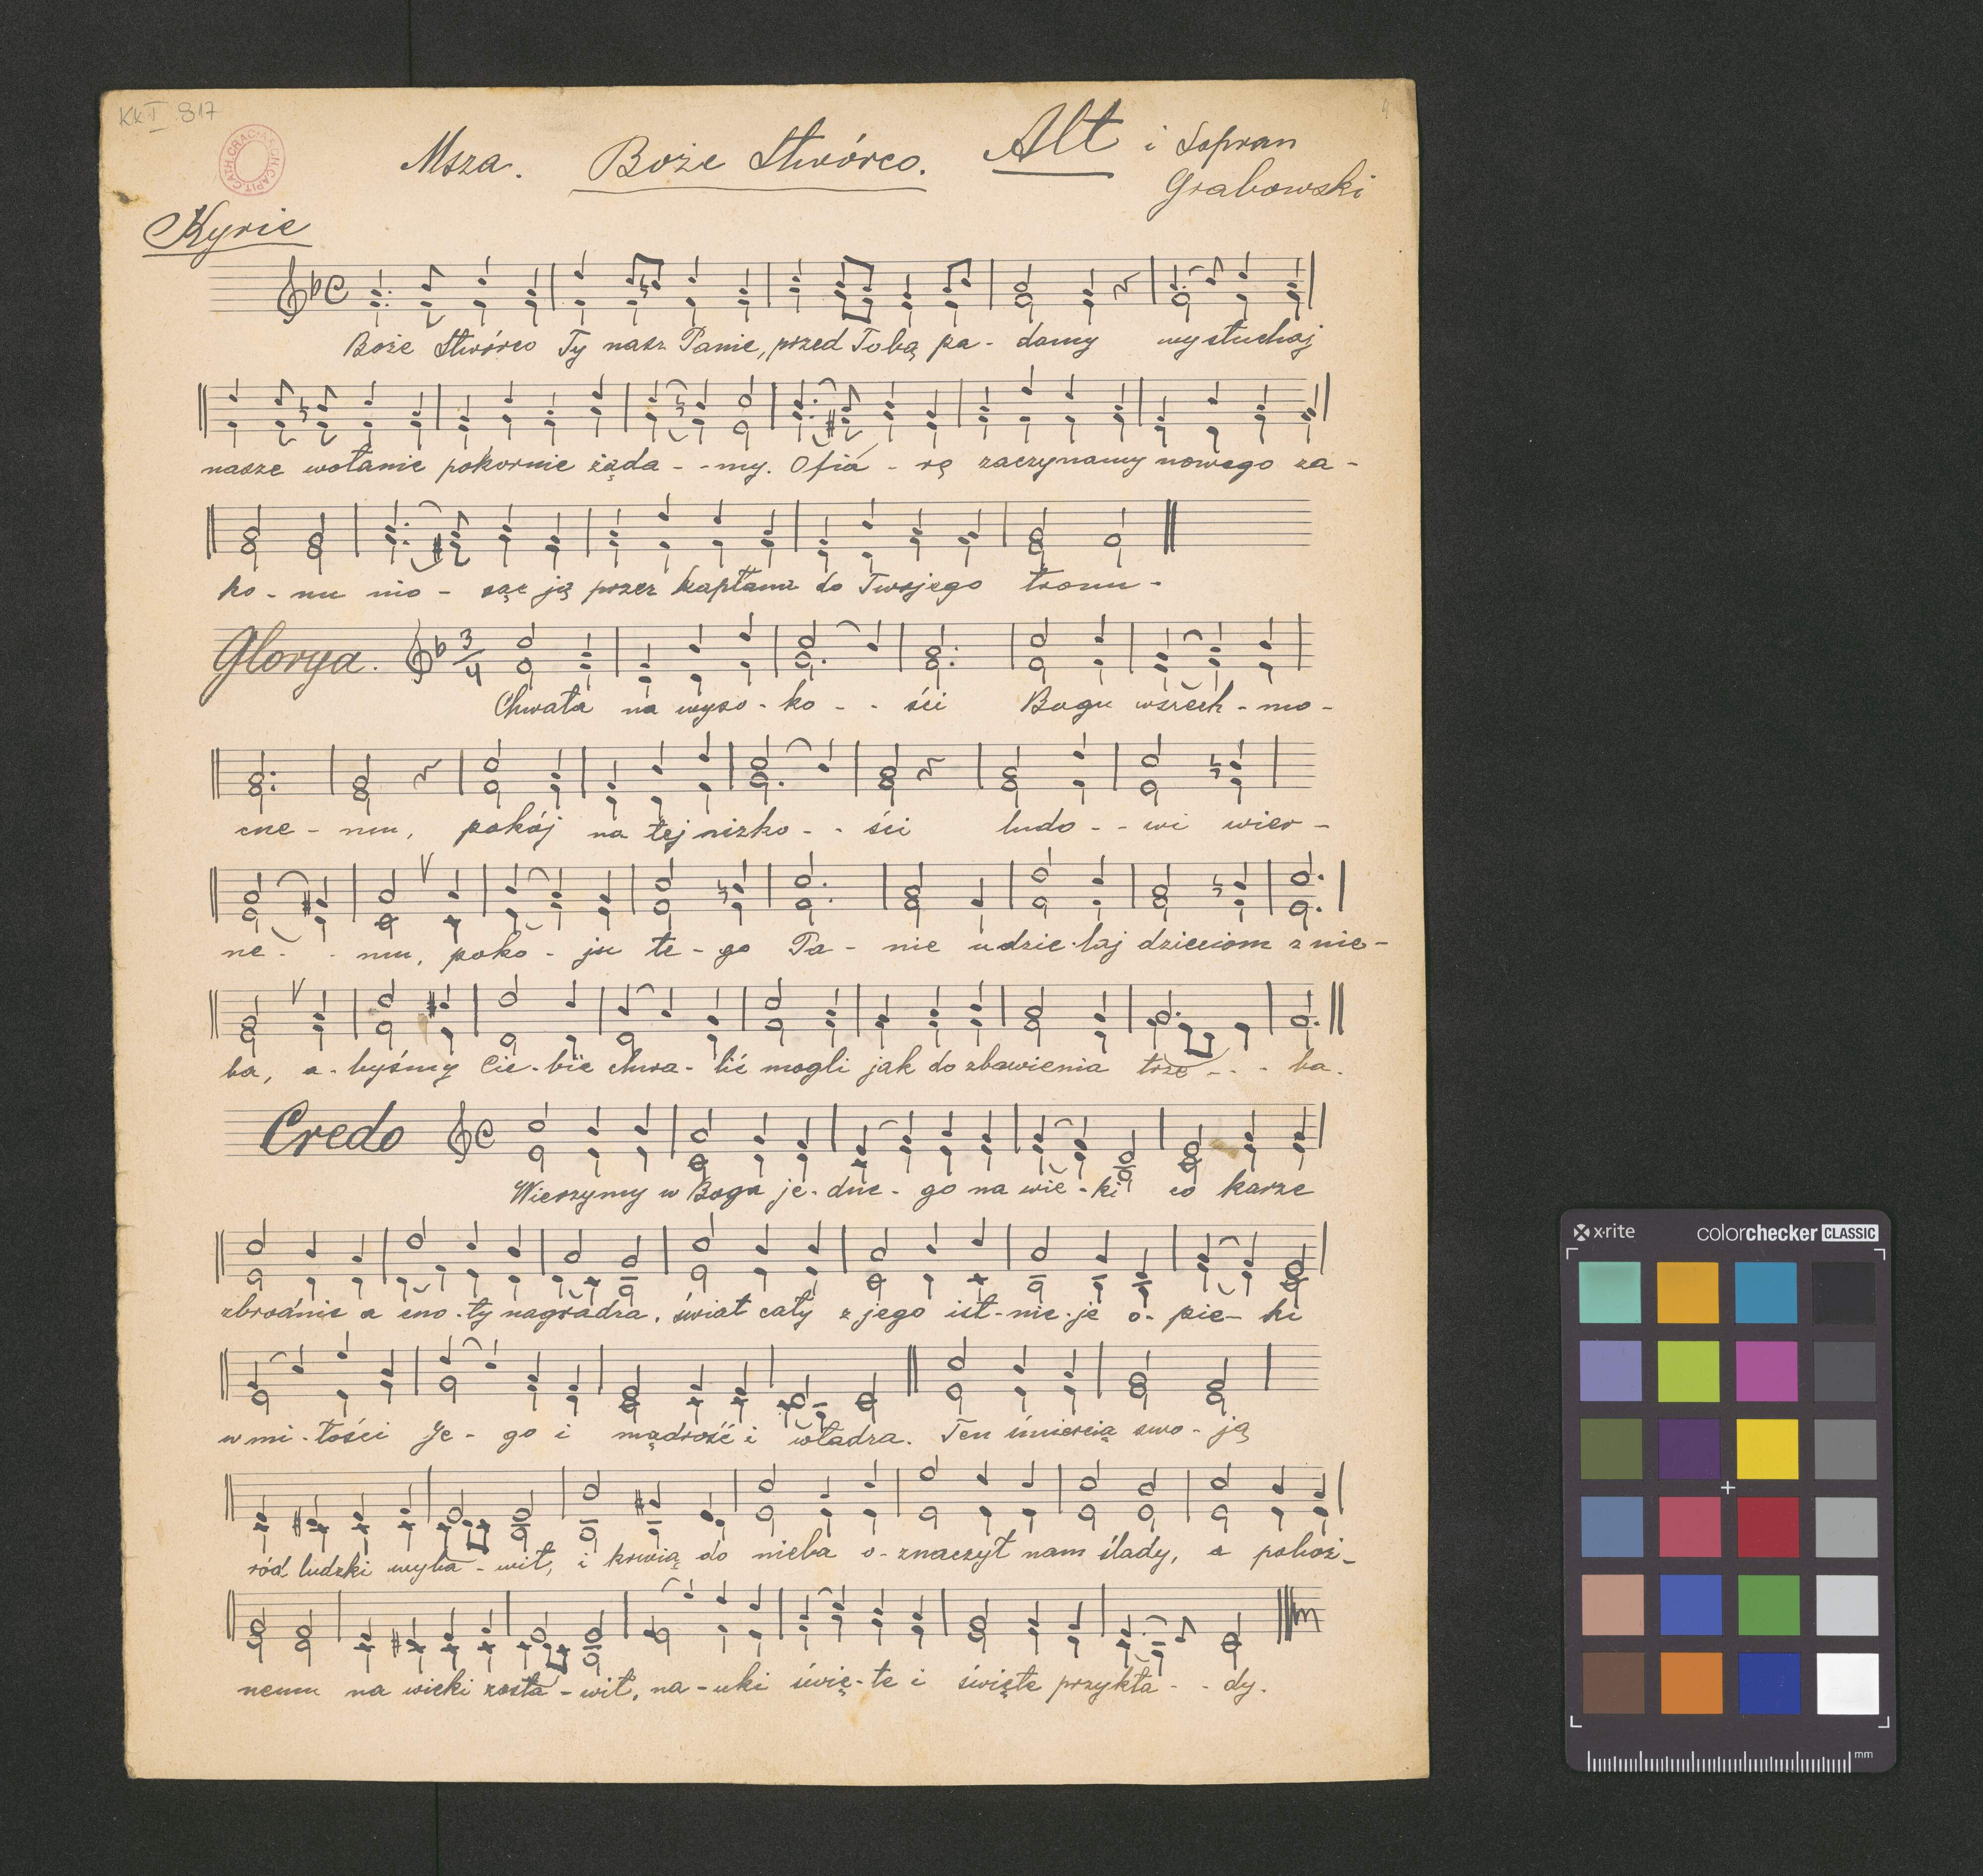 KkI.817
Msza. Boże Stwórco. Alt i Sopran
Grabowski
Kyrie
Boże Stwórco Ty nasz Panie, przed Tobą pa - damy wysłuchaj
nasze wołanie pokornie żąda - - my. Ofia - rę zaczynamy nowego za -
ko - nu nio - sąc ją przez kapłana do Twojego tronu -
Glorya. 3/4
Chwała na wyso - ko - - ści Bogu wszech - mo -
cne - mu, pokój na tej nizko - - ści ludo - - wi wier -
ne - - mu, poko - ju te - go Pa - nie udzie - laj dzieciom z nie -
ba, a - byśmy Cie - bie chwa - lić mogli jak do zbawienia trze - - - ba.
Credo
Wierzymy w Boga je - dne - go na wie - ki co karze
zbrodnie a cno - ty nagradza, świat cały z jego ist - nie - je o - pie - ki
w mi - łości Je - go i mądrość i władza. Ten śmiercią swo - ją
ród ludzki wyba - wił, i krwią do nieba o - znaczył nam ślady, a poboż -
nemu na wieki zosta - wił, na - uki świę - te i święte przykła - - dy.
x-rite colorchecker CLASSIC
mm